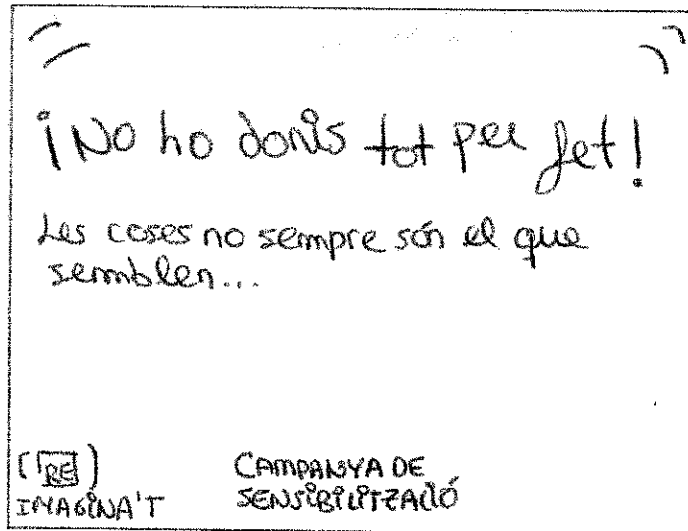 ¡No ho donis tot per fet!
Les coses no sempre són el que
semblen...
(RE)
IMAGINA'T
CAMPANYA DE
SENSIBILITZACIÓ